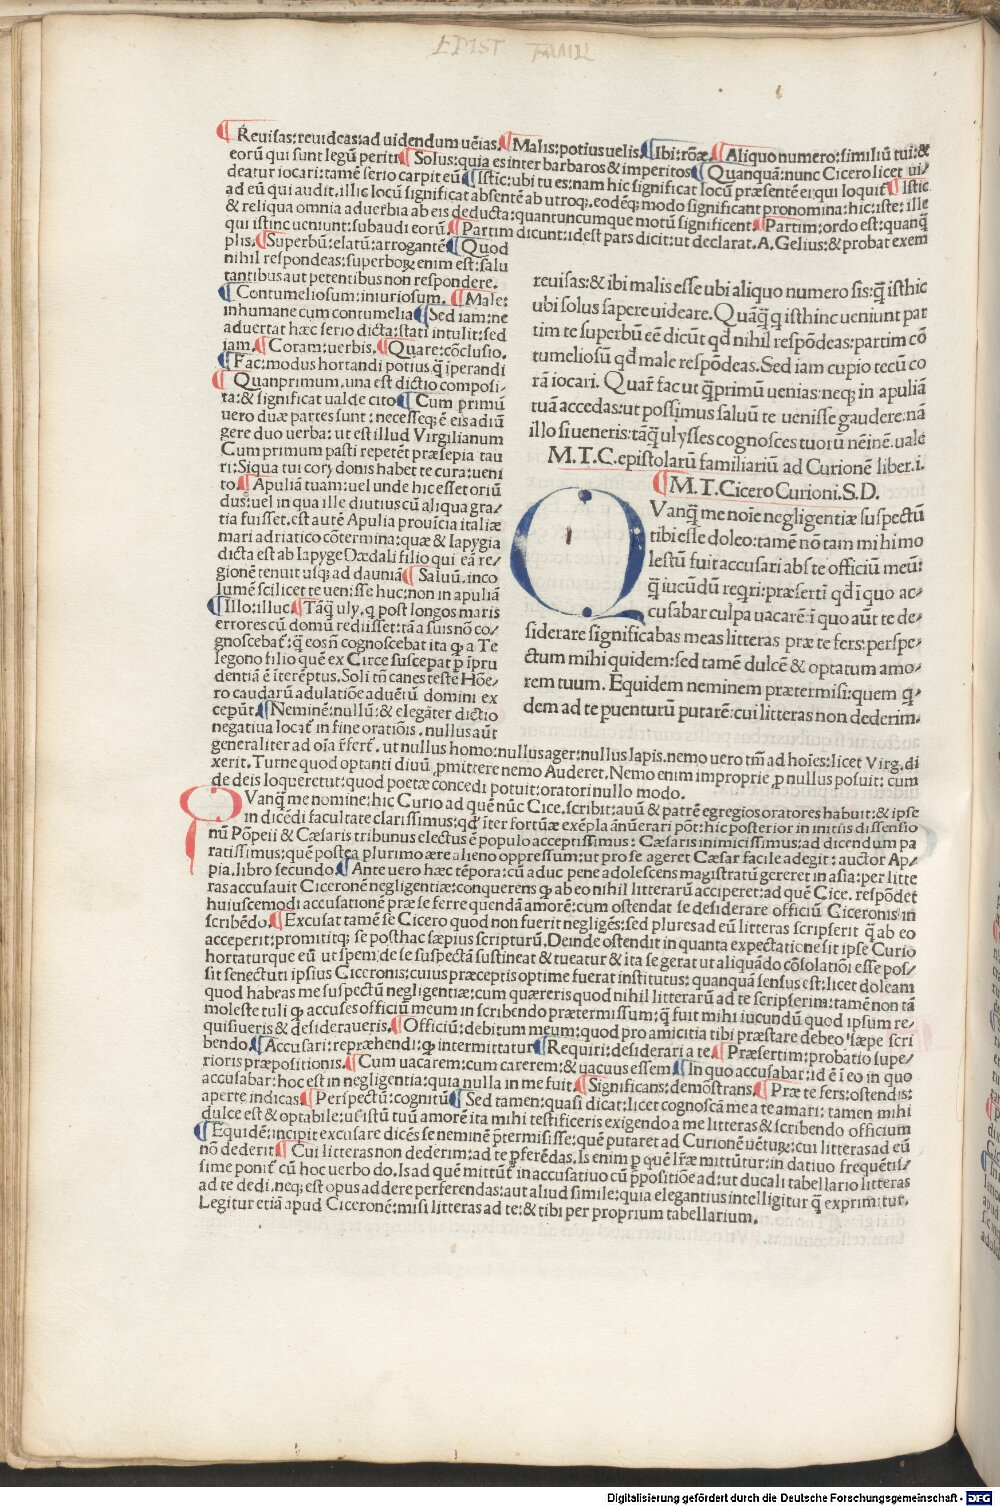 EPIST FAMIL
Reuisas:reuideas:ad uidendum uēias. Malis:potius uelis. Ibi:rōæ. Aliquo numero:similiū tui:&
eorū qui sunt legū periti Solus:quia es inter barbaros & imperitos Quanquā:nunc Cicero licet ui⸗
deatur iocari:tamē serio carpit eū Istic:ubi tu es:nam hic significat locū præsentē ei qui loquit̄ Istic
ad eū qui audit.illic locū significat absentē ab utroq;.eodēq; modo significant pronomina:hic:iste:ille
& reliqua omnia aduerbia ab eis deducta:quantuncumque motū significent. Partim:ordo est:quanq̄
qui istinc ueniunt:subaudi eorū. Partim dicunt:idest pars dicit:ut declarat.A.Gelius:& probat exem
plis. Superbū:elatū:arrogantē Quod
nihil respondeas:superboꝝ enim est:salu
tantibus aut petentibus non respondere.
Contumeliosum:iniuriosum. Male:
inhumane cum contumelia Sed iam:ne
aduertat hæc serio dicta:stati intulit:sed
iam. Coram:uerbis. Quare:cōclusio.
Fac:modus hortandi potius q̄ īperandi
Quanprimum.una est dictio composi⸗
ta:& significat ualde cito Cum primū
uero duæ partes sunt:necesseq; ē eis adiū
gere duo uerba:ut est illud Virgilianum
Cum primum pasti repetēt præsepia tau
ri:Siqua tui cory donis habet te cura:ueni
to. Apuliā tuam:uel unde hic esset oriū
dus:uel in qua ille diutius cū aliqua gra⸗
tia fuisset.est autē Apulia prouīcia italiæ
mari adriatico cōtermina:quæ & Iapygia
dicta est ab Iapyge Dædali filio qui eā re⸗
gionē tenuit usq; ad dauniā Saluū.inco
lumē scilicet te uenisse huc:non in apuliā
Illo:illuc. Tāq̄ uly.ꝙ post longos maris
errores cū domū rediisset:tā a suis nō co⸗
gnoscebat̄:q̄ eosñ cognoscebat ita ꝙ a Te
legono filio quē ex Circe suscepat ꝑ īpru
dentiā ē īterēptus.Soli tñ canes teste Hōe⸗
ro caudarū adulatiōe aduētū domini ex
cepūt. Neminē:nullū:& elegāter dictio
negatiua locat̄ in fine oratiōis.nullus aūt
generaliter ad oīa r̄fert̄.ut nullus homo:nullus ager:nullus lapis.nemo uero tm̄ ad hoīes:licet Virg.di
xerit.Turne quod optanti diuū ꝓmittere nemo Auderet.Nemo enim improprie ꝓ nullus posuit:cum
de deis loqueretur:quod poetæ concedi potuit:oratori nullo modo.
reuisas:& ibi malis esse ubi aliquo numero sis:q̄ isthic
ubi solus sapere uideare.Quāq̄ q isthinc ueniunt par
tim te superbū eē dicūt qđ nihil respōdeas:partim cō
tumeliosū qđ male respōdeas.Sed iam cupio tecū co
rā iocari.Quar̄ fac ut q̄primū uenias:neq; in apuliā
tuā accedas:ut possimus saluū te uenisse gaudere:nā
illo si ueneris:tāq̄ ulysses cognosces tuorū nēinē.uale
M.T.C.epistolarū familiariū ad Curionē liber.i.
M.T.Cicero Curioni.S.D.
QVanq̄ me noīe negligentiæ suspectū
tibi esse doleo:tamē nō tam mihi mo
lestū fuit accusari abs te officiū meū:
q̄ iucūdū reqri:præserti qđ ī quo ac⸗
cusabar culpa uacarē:ī quo aūt te de⸗
siderare significabas meas litteras præ te fers:perspe⸗
ctum mihi quidem:sed tamē dulcē & optatum amo⸗
rem tuum.Equidem neminem prætermisi:quem q̄⸗
dem ad te puenturū putarē:cui litteras non dederim.
QVanq̄ me nomine:hic Curio ad quē nūc Cice.scribit:auū & patrē egregios oratores habuit:& ipse
in dicēdi facultate clarissimus:qđ īter fortūæ exēpla ānūerari pōt:hic posterior in initiis dissensio
nū Pōpeii & Cæsaris tribunus electus ē populo acceptissimus:Cæsaris inimicissimus:ad dicendum pa
ratissimus:quē postea plurimo ære alieno oppressum:ut pro se ageret Cæsar facile adegit:auctor Ap⸗
pia.libro secundo. Ante uero hæc tēpora:cū aduc pene adolescens magistratū gereret in asia:per litte
ras accusauit Ciceronē negligentiæ:conquerens ꝙ ab eo nihil litterarū acciperet:ad quē Cice.respōdet
huiuscemodi accusationē præ se ferre quendā amorē:cum ostendat se desiderare officiū Ciceronis in
scribēdo. Excusat tamē se Cicero quod non fuerit negligēs:sed plures ad eū litteras scripserit q̄ ab eo
acceperit:promittitq; se posthac sæpius scripturū.Deinde ostendit in quanta expectatione sit ipse Curio
hortaturque eū ut spem de se suspectā sustineat & tueatur & ita se gerat ut aliquādo cōsolatiōi esse pos⸗
sit senectuti ipsius Ciceronis:cuius præceptis optime fuerat institutus:quanquā sensus est:licet doleam
quod habeas me suspectū negligentiæ:cum quæreris quod nihil litterarū ad te scripserim:tamē non tā
moleste tuli ꝙ accuses officiū meum in scribendo prætermissum:q̄ fuit mihi iucundū quod ipsum re⸗
quisiueris & desideraueris. Officiū:debitum meum:quod pro amicitia tibi præstare debeo sæpe scri
bendo. Accusari:repræhendi:ꝙ intermittatur Requiri:desiderari a te. Præsertim:probatio supe⸗
rioris præpositionis. Cum uacarem:cum carerem:& uacuus essem In quo accusabar:id ē ī eo in quo
accusabar:hoc est in negligentia:quia nulla in me fuit. Significans:demōstrans. Præ te fers:ostendis:
aperte indicas. Perspectū:cognitū Sed tamen:quasi dicat:licet cognoscā me a te amari:tamen mihi
dulce est & optabile:ut istū tuū amorē ita mihi testificeris exigendo a me litteras & scribendo officium
Equidē:incipit excusare dicēs se neminē p̄termisisse:quē putaret ad Curionē uēturꝝ:cui litteras ad eū
nō dederit Cui litteras non dederim:ad te ꝑferēdas.Is enim ꝑ quē lr̄æ mittūtur:in datiuo frequētis⸗
sime ponit̄ cū hoc uerbo do.Is ad quē mittūt̄ in accusatiuo cū p̄positiōe ad:ut ducali tabellario litteras
ad te dedi.neq; est opus addere perferendas:aut aliud simile:quia elegantius intelligitur q̄ exprimitur.
Legitur etiā apud Ciceronē:misi litteras ad te:& tibi per proprium tabellarium.
Digitalisierung gefördert durch die Deutsche Forschungsgemeinschaft - DFG